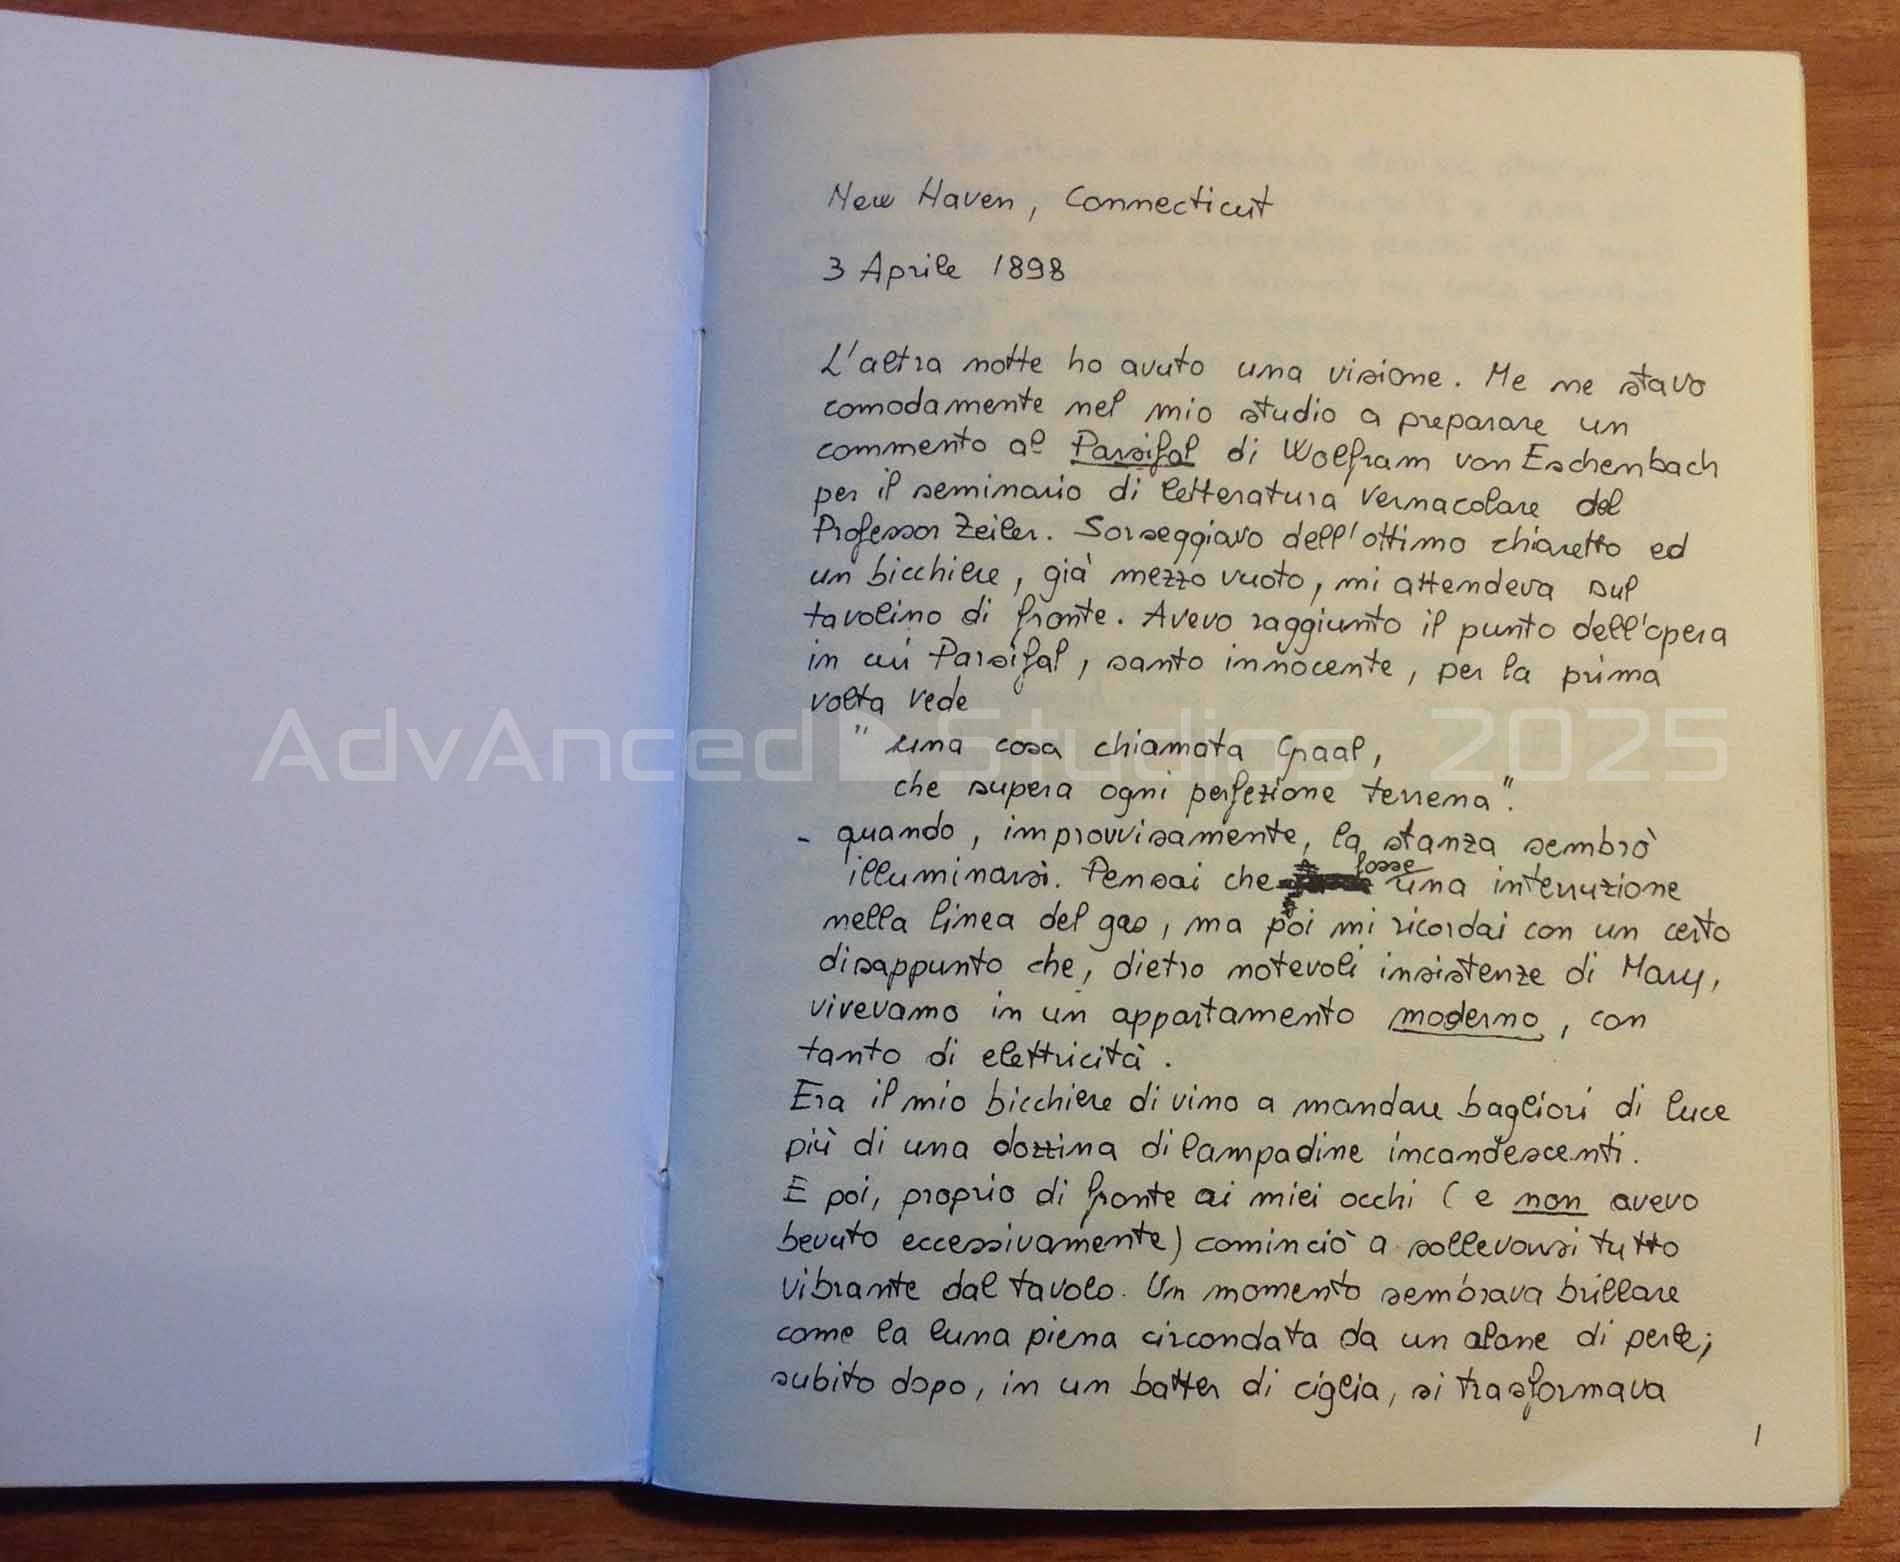 New Haven, Connecticut
3 Aprile 1898
L'altra notte ho avuto una visione. Me ne stavo
comodamente nel mio studio a preparare un
commento al Parsifal di Wolfram von Eschenbach
per il seminario di letteratura vernacolare del
Professor Zeiler. Sorseggiavo dell'ottimo chiaretto ed
un bicchiere, già mezzo vuoto, mi attendeva sul
tavolino di fronte. Avevo raggiunto il punto dell'opera
in cui Parsifal, santo innocente, per la prima
volta vede
AdvAnced Studios 2025
" una cosa chiamata Graal,
che supera ogni perfezione terrena".
- quando, improvvisamente, la stanza sembrò
illuminarsi. Pensai che fosse una interruzione
nella linea del gas, ma poi mi ricordai con un certo
disappunto che, dietro notevoli insistenze di Mary,
vivevamo in un appartamento moderno, con
tanto di elettricità.
Era il mio bicchiere di vino a mandare bagliori di luce
più di una dozzina di lampadine incandescenti.
E poi, proprio di fronte ai miei occhi (e non avevo
bevuto eccessivamente) cominciò a sollevarsi tutto
vibrante dal tavolo. Un momento sembrava brillare
come la luna piena circondata da un alone di perle;
subito dopo, in un batter di ciglia, si trasformava
1